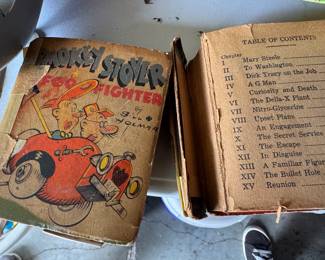 SMOKEY STOVER
FOO FIGHTER
TABLE OF CONTENTS
Chapter
I Mary Steele
II To Washington
III Dick Tracy on the Job
IV A G Man
V Curiosity and Death
VI The Della-X Plant
VII Nitro-Glycerine
VIII Upset Plans
IX An Engagement
X The Secret Service
XI The Escape
XII In Disguise
XIII A Familiar Figure
XIV The Bullet Hole
XV Reunion